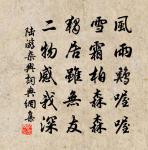 風雨雞喔喔
雪霜柏森森
獨居雖無友
二物感我深
陸游雜興詞典網集